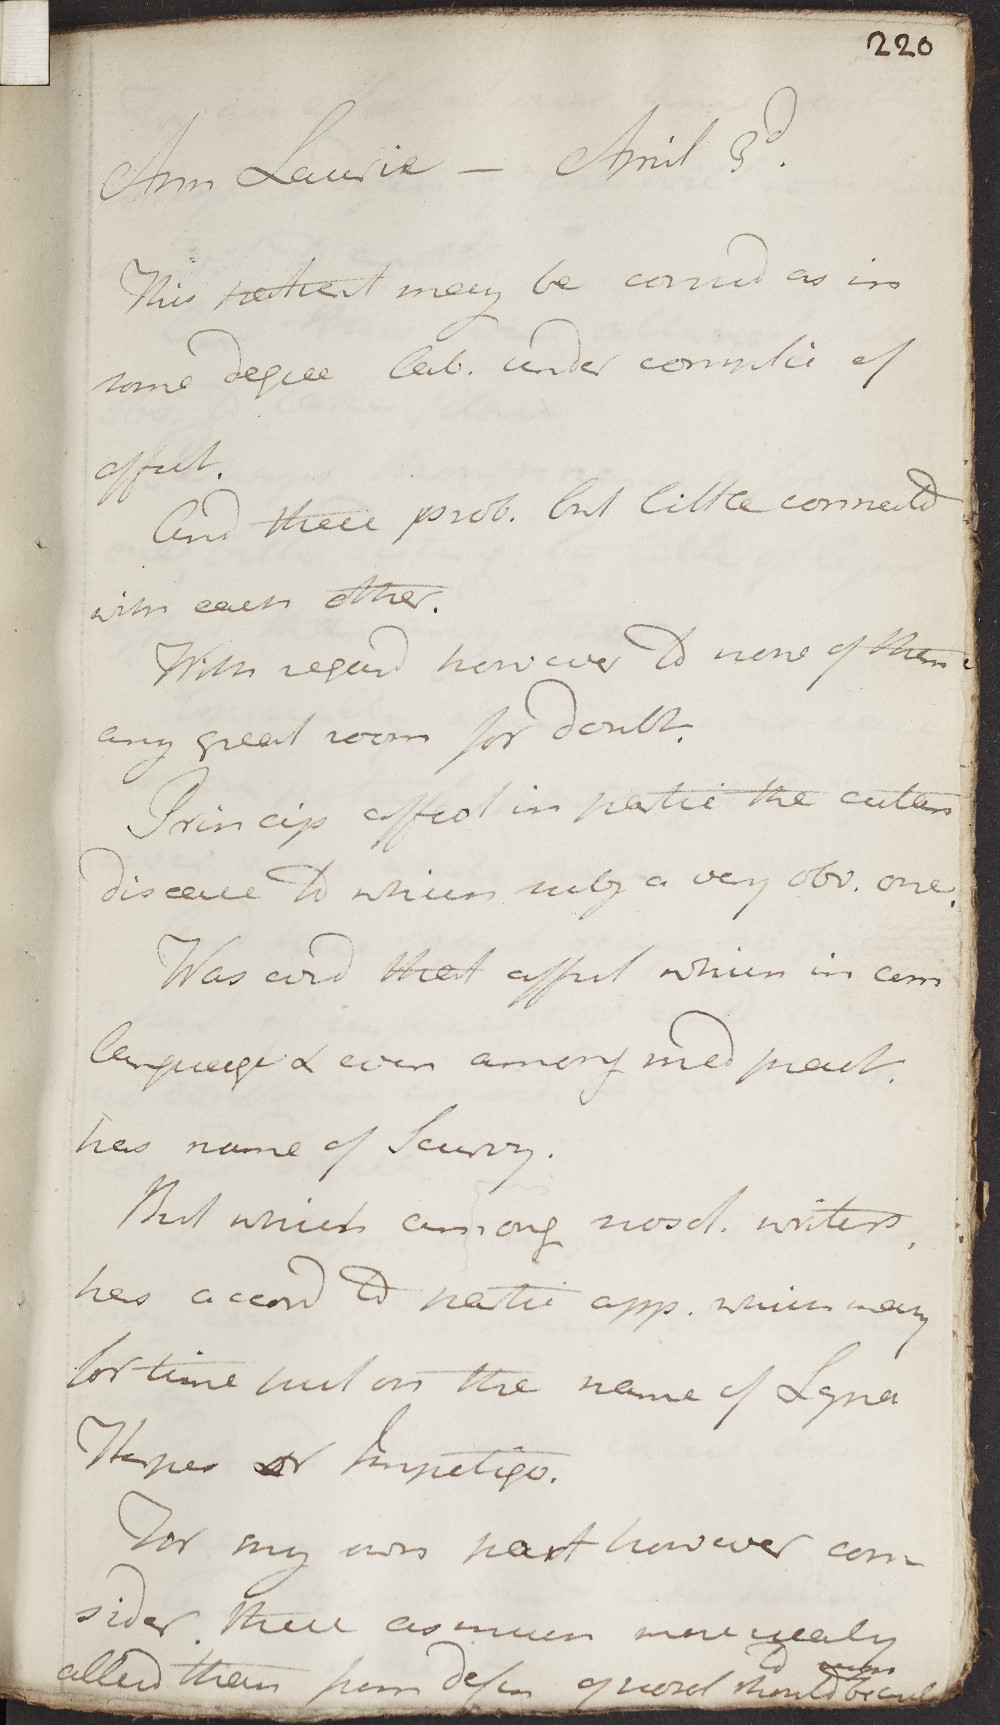 220
Ann Laurie – April 3d.
This patient may be consid as in
some degree lab. under complic of
affect.
And these prob. but little connectd
with each other.
With regard however to none of them
any great room for doubt.
Princip affect in partic the cutan
disease to which subj a very obv. one.
Was cons that affect which in com
language & even among med pract.
has name of Scurvy.
But which among nosol. writers,
has accord to partic app. which may
for time put on the name of Lepra
Herpes or Impetigo.
For my own part however con
sider these as much more nearly
allied than from defin of nosol should be